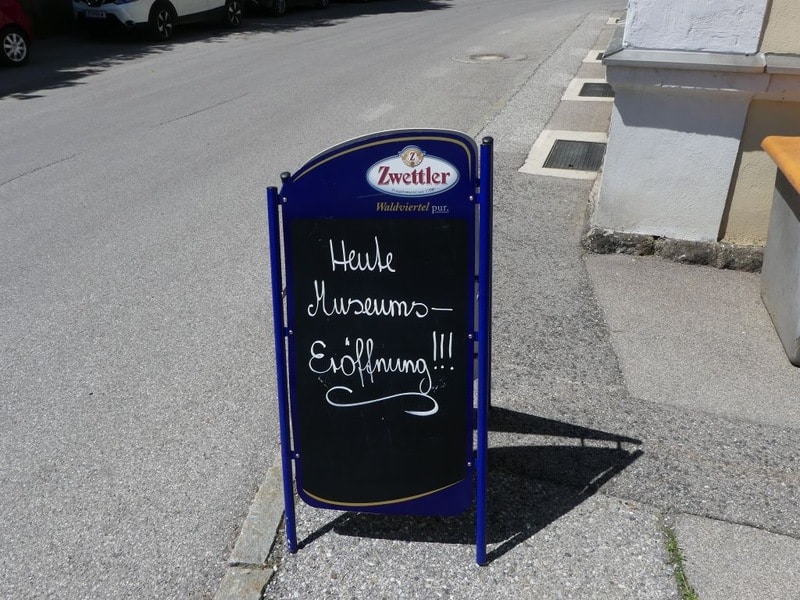 Zwettler
Waldviertel pur.
Heute
Museums-
Eröffnung!!!